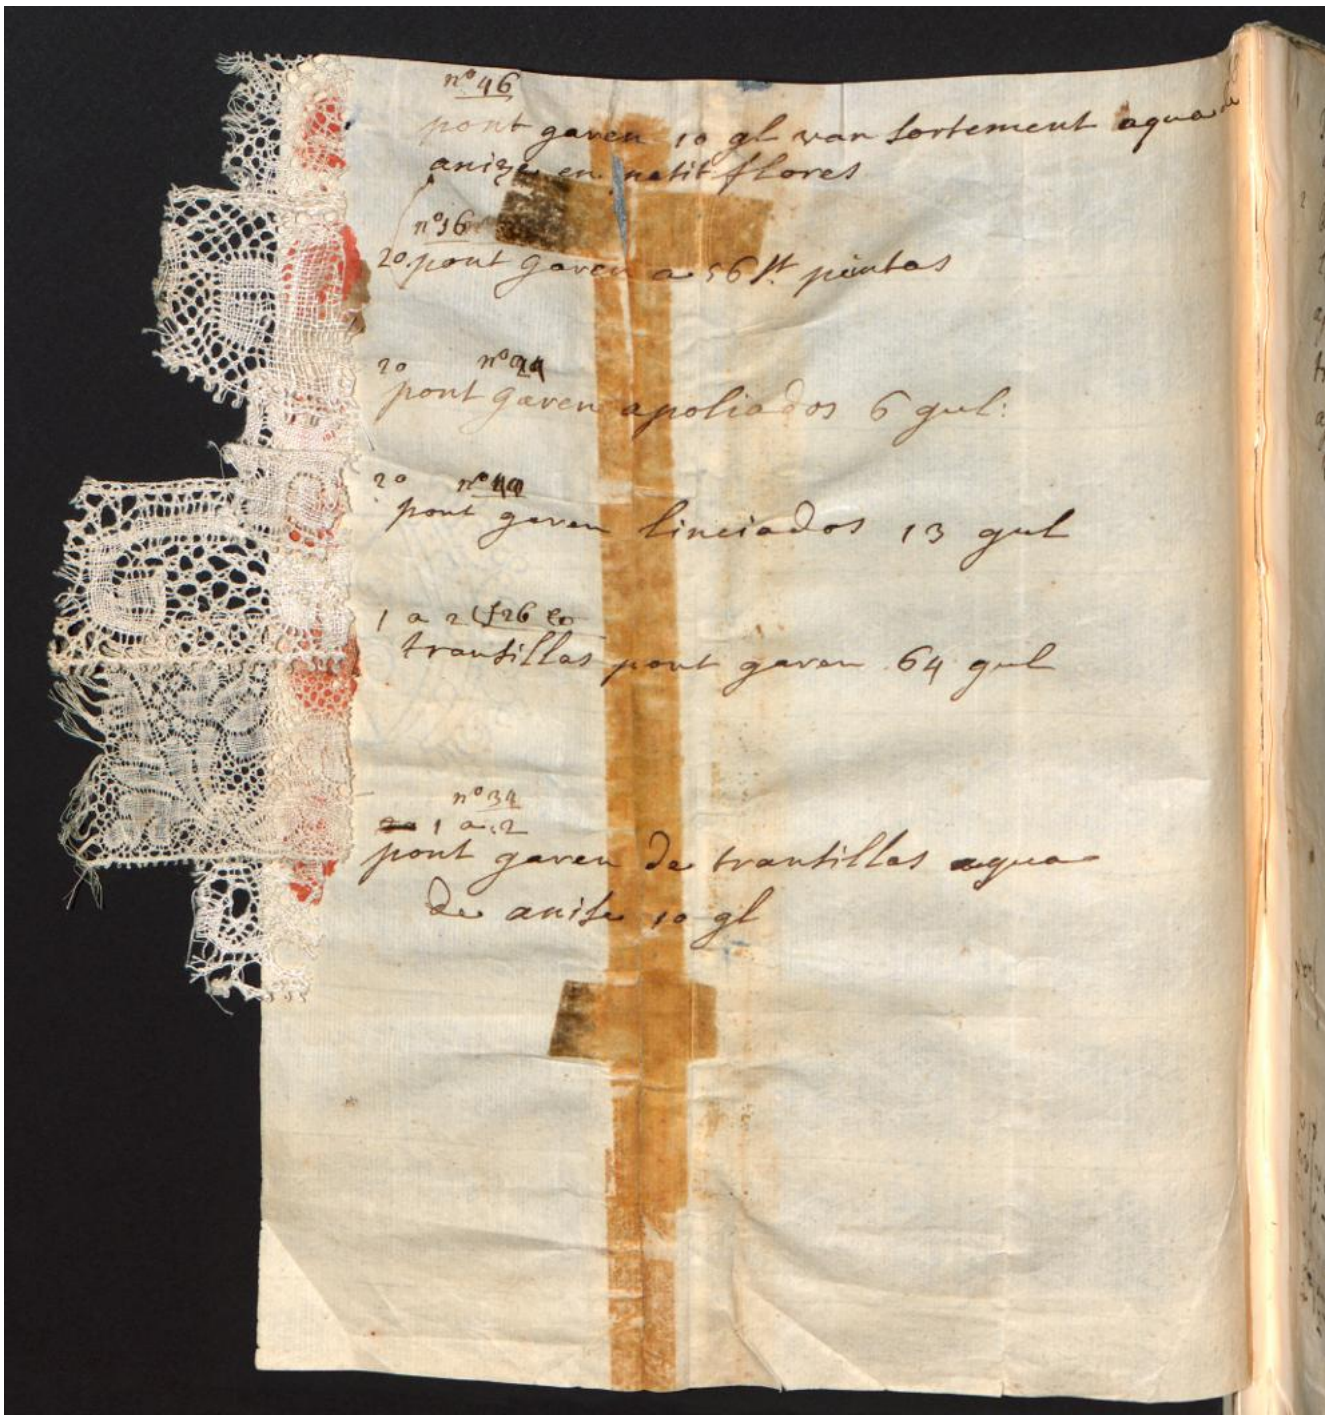 nº 46
pont gaven 10 gl van sortement agua de
anize en petit flores
nº 16
20 pont gaven a 56 st pintas
20 nº
pont gaven apoliados 6 gul:
20 nº
pont gaven linciados 13 gul
1 a 2
trantillas pont gaven 64 gul
nº 34
1 a 2
pont gaven de trantillas agua
de anise 10 gl